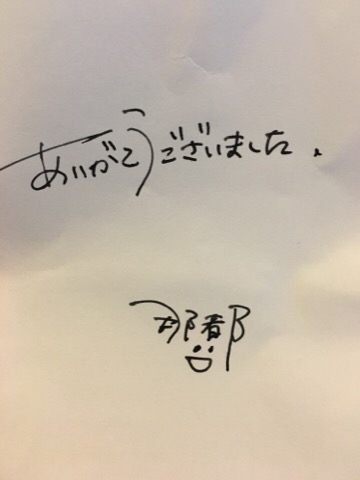 ありがとうございました。
那都